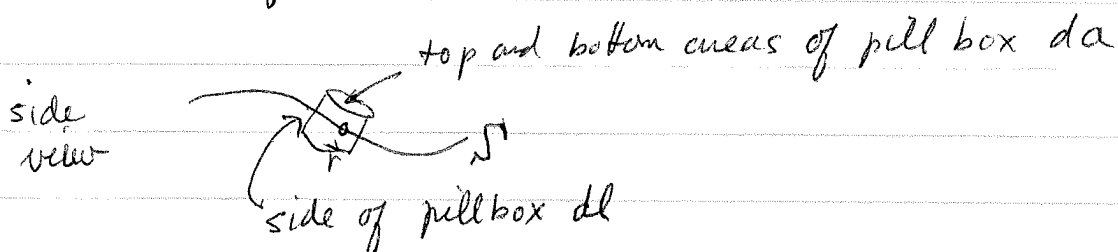 top and bottom areas of pill box da
side
view
S
r
side of pillbox dl